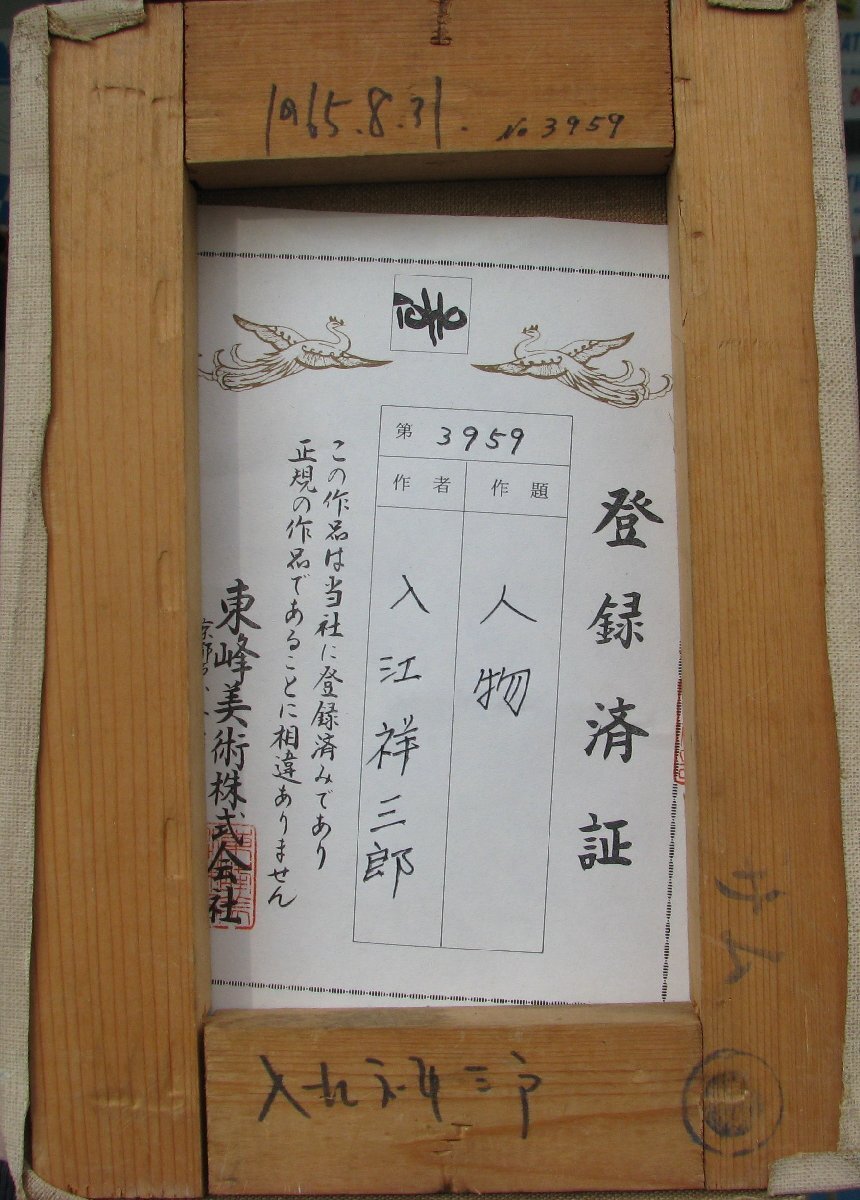 1965.8.31.
No 3959
TOHO
登録済証
第 3959
作題
人物
作者
入江祥三郎
この作品は当社に登録済みであり
正規の作品であることに相違ありません
東峰美術株式会社
サム